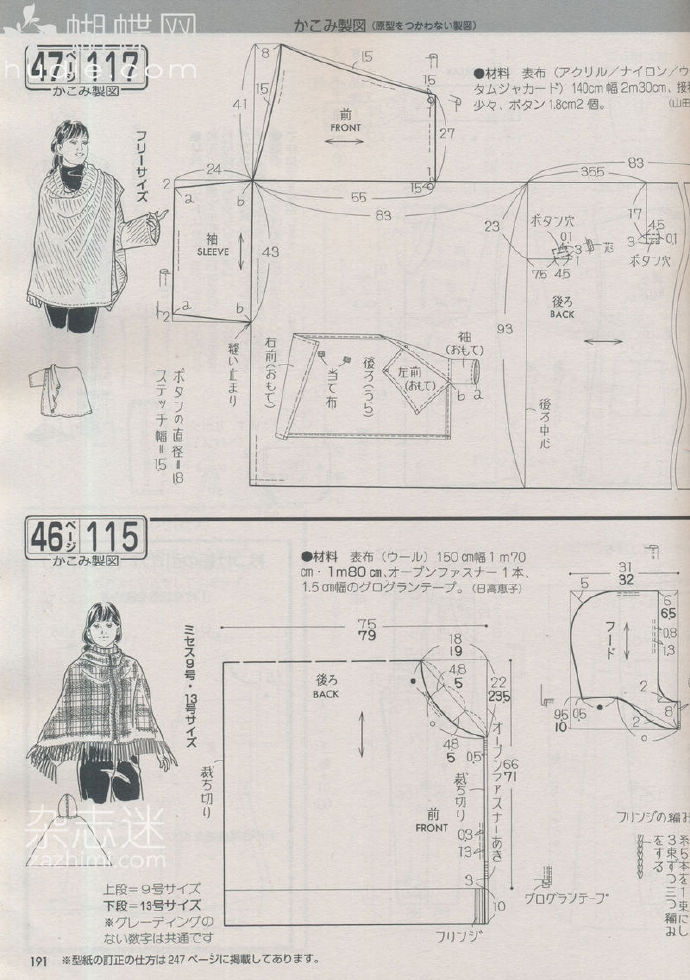 蝴蝶网
かこみ製図（原型をつかわない製図）
47ページ 117
かこみ製図
フリーサイズ
●材料 表布（アクリル／ナイロン／ウ
タムジャカード）140cm幅2m30cm、接
少々、ボタン1.8cm2個。
（山田
8
15
15
41
前
FRONT
1.5
0.1
27
1.5
0.1
24
2
a
b
55
83
83
35.5
袖
SLEEVE
43
23
17
ボタン穴
0.1
3
7.5
4.5
4.5
3
0.1
ボタン穴
後ろ
BACK
93
2
a
b
縫い止まり
右前（おもて）
当て布
後ろ（うら）
左前
（おもて）
袖
（おもて）
b
a
後ろ中心
ボタンの直径＝1.8
ステッチ幅＝1.5
46ページ 115
かこみ製図
●材料 表布（ウール）150cm幅1m70
cm・1m80cm、オープンファスナー1本、
1.5cm幅のグログランテープ。（日高恵子）
ミセス9号・13号サイズ
75
79
18
19
後ろ
BACK
4.8
5
22
23.5
4.8
5
0.5
オープンファスナーあき
66
71
裁ち切り
裁ち切り
前
FRONT
0.3
1.3
3
10
フリンジ
グログランテープ
31
32
5
6
6.5
フード
0.8
1.3
2
2
8
9.5
10
0.5
フリンジの編み
糸5本を1束にし
3束ずつ三つ編み
をする
杂志迷
zazhimi.com
上段＝9号サイズ
下段＝13号サイズ
※グレーディングの
ない数字は共通です
191 ※型紙の訂正の仕方は247ページに掲載してあります。